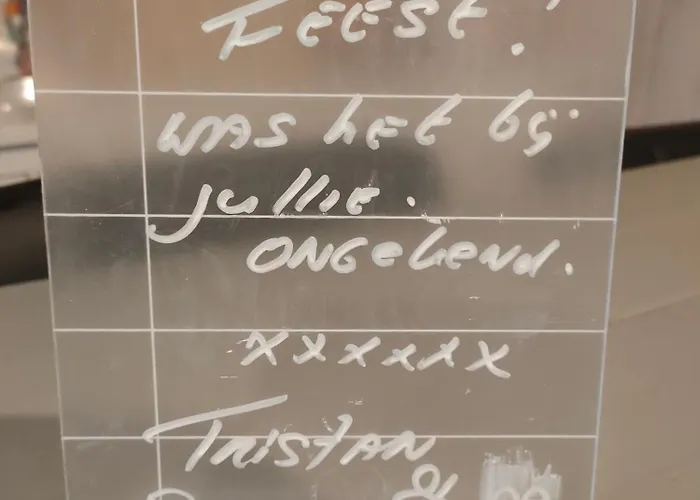 FEEST!
was het bij
jullie.
ONGekend.
xxxxxx
TRISTAN
&